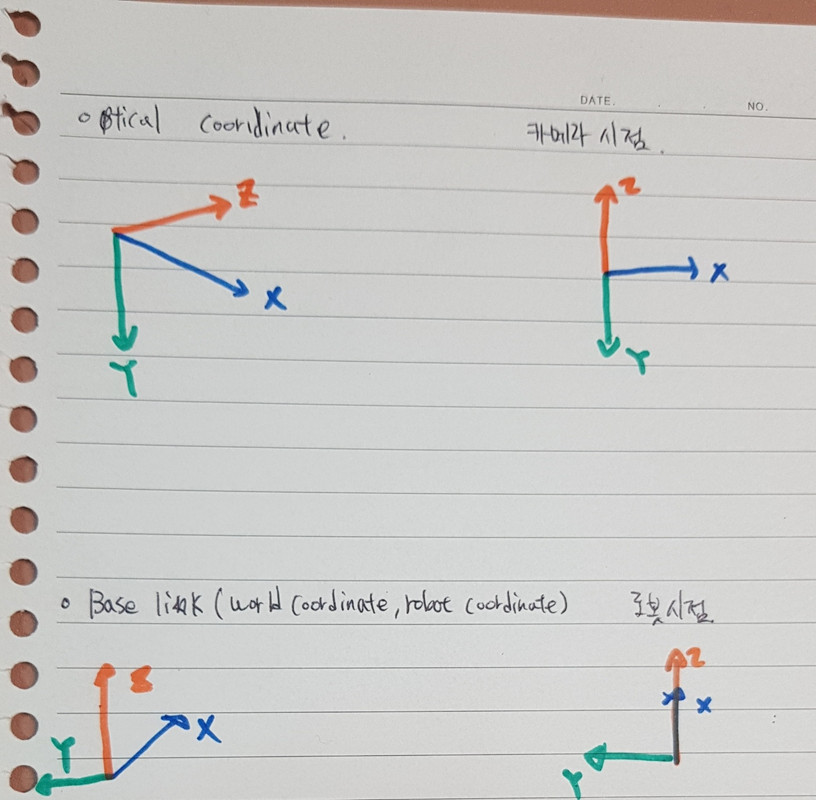 DATE. NO.
o optical coordinate. 카메라 시점.
Z Z
X X
Y Y
o Base link (world coordinate, robot coordinate) 로봇시점
Z Z
X X
Y Y